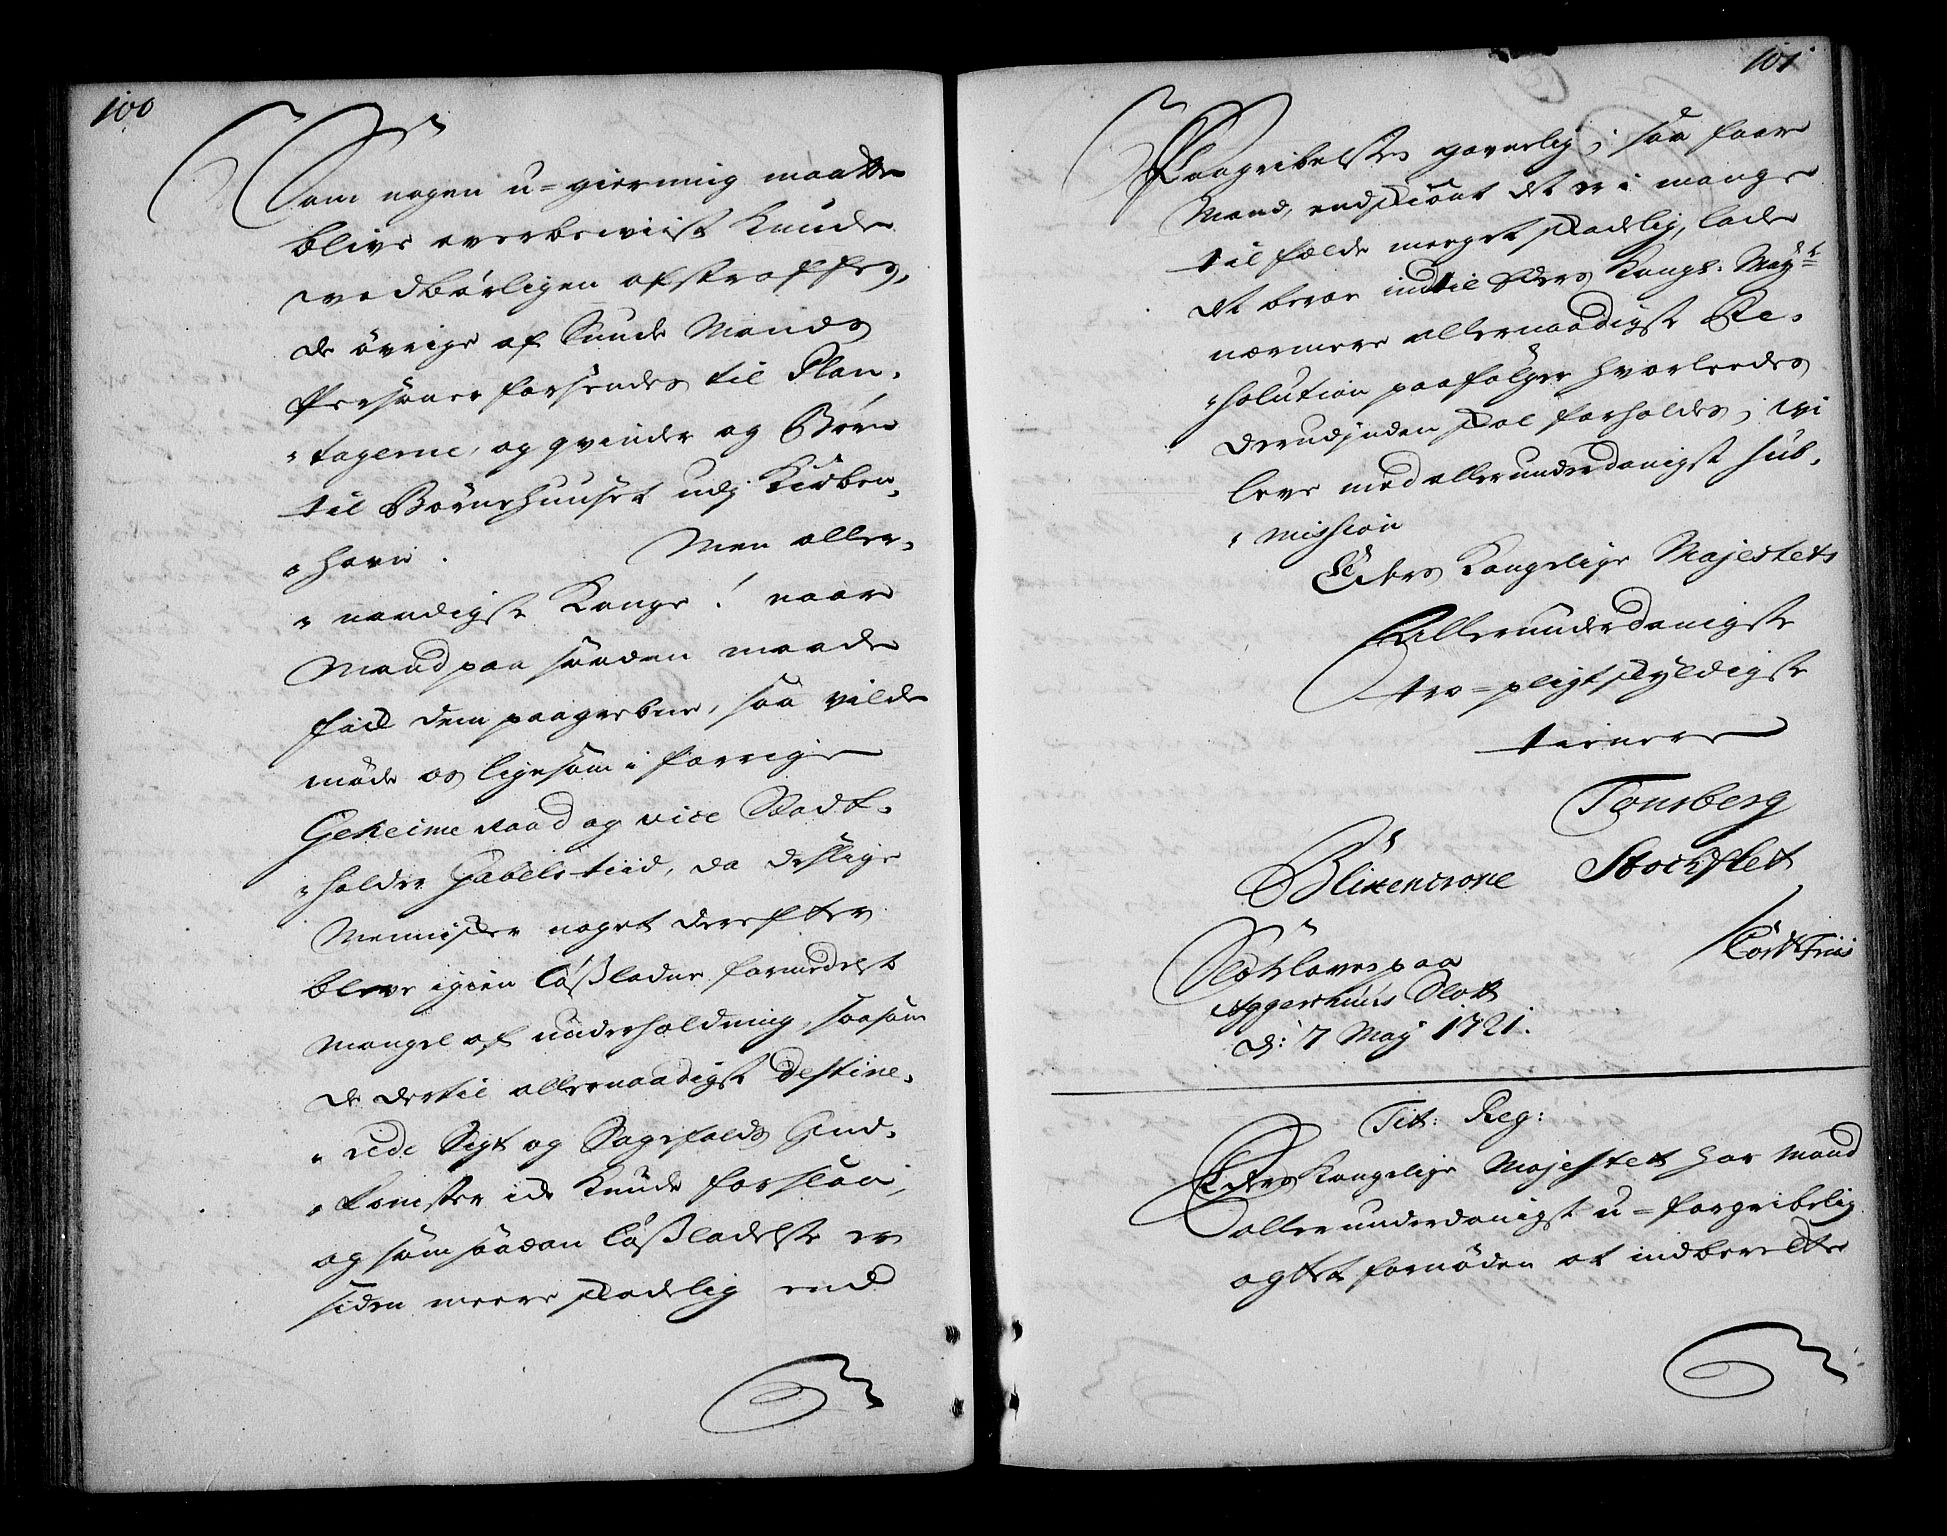 100
Som nogen u-gierning maatte
blive overbeviist kunde
vedbørligen afstraffes,
de øvrige af sunde Mands
Personer forsendes til Plan-
"tagerne, og qvinder og Børn
til Børnehuuset udj Kiøben-
"havn. Men aller-
"naadigste Konge! naar
Mand paa saadan maade
fick dem paagrebne, saa vilde
møde os ligesom i forrige
Geheime Raad og vice Stadt-
"holder Gabels tiid, da deslige
Mennisker noget derefter
bleve igien løßladne formedelst
Mangel af underholdning, saasom
de dertil allernaadigst destine-
"rede Sigt og Sagefalds Ind-
"komster ide kunde forslaae,
og som saadan løßladelse er
siden meere skadelig end
101
Paagribelsen gavnlig; saa faar
Mand, endskiønt det er i mange
tilfælde meeget skadelig, lade
det beroe indtil Eders Kongl: Mayts
nærmere allernaadigste Re-
"solution paafølger hvorleedes
derudjnden skal forholdes; vi
leve med allerunderdanigst sub-
"mission
Eders Kongelige Majestets
Allerunderdanigste
tro-pligtskyldigste
tienere
Tonsberg
Blixencrone Stockflet
Slotzlovens paa Cort Friis
Aggershuus Slott
d: 7 May 1721.
Tit: Reg:
Eders Kongelige Majestet har mand
allerunderdanigst u-forgribelig
agtet fornøden at indberette